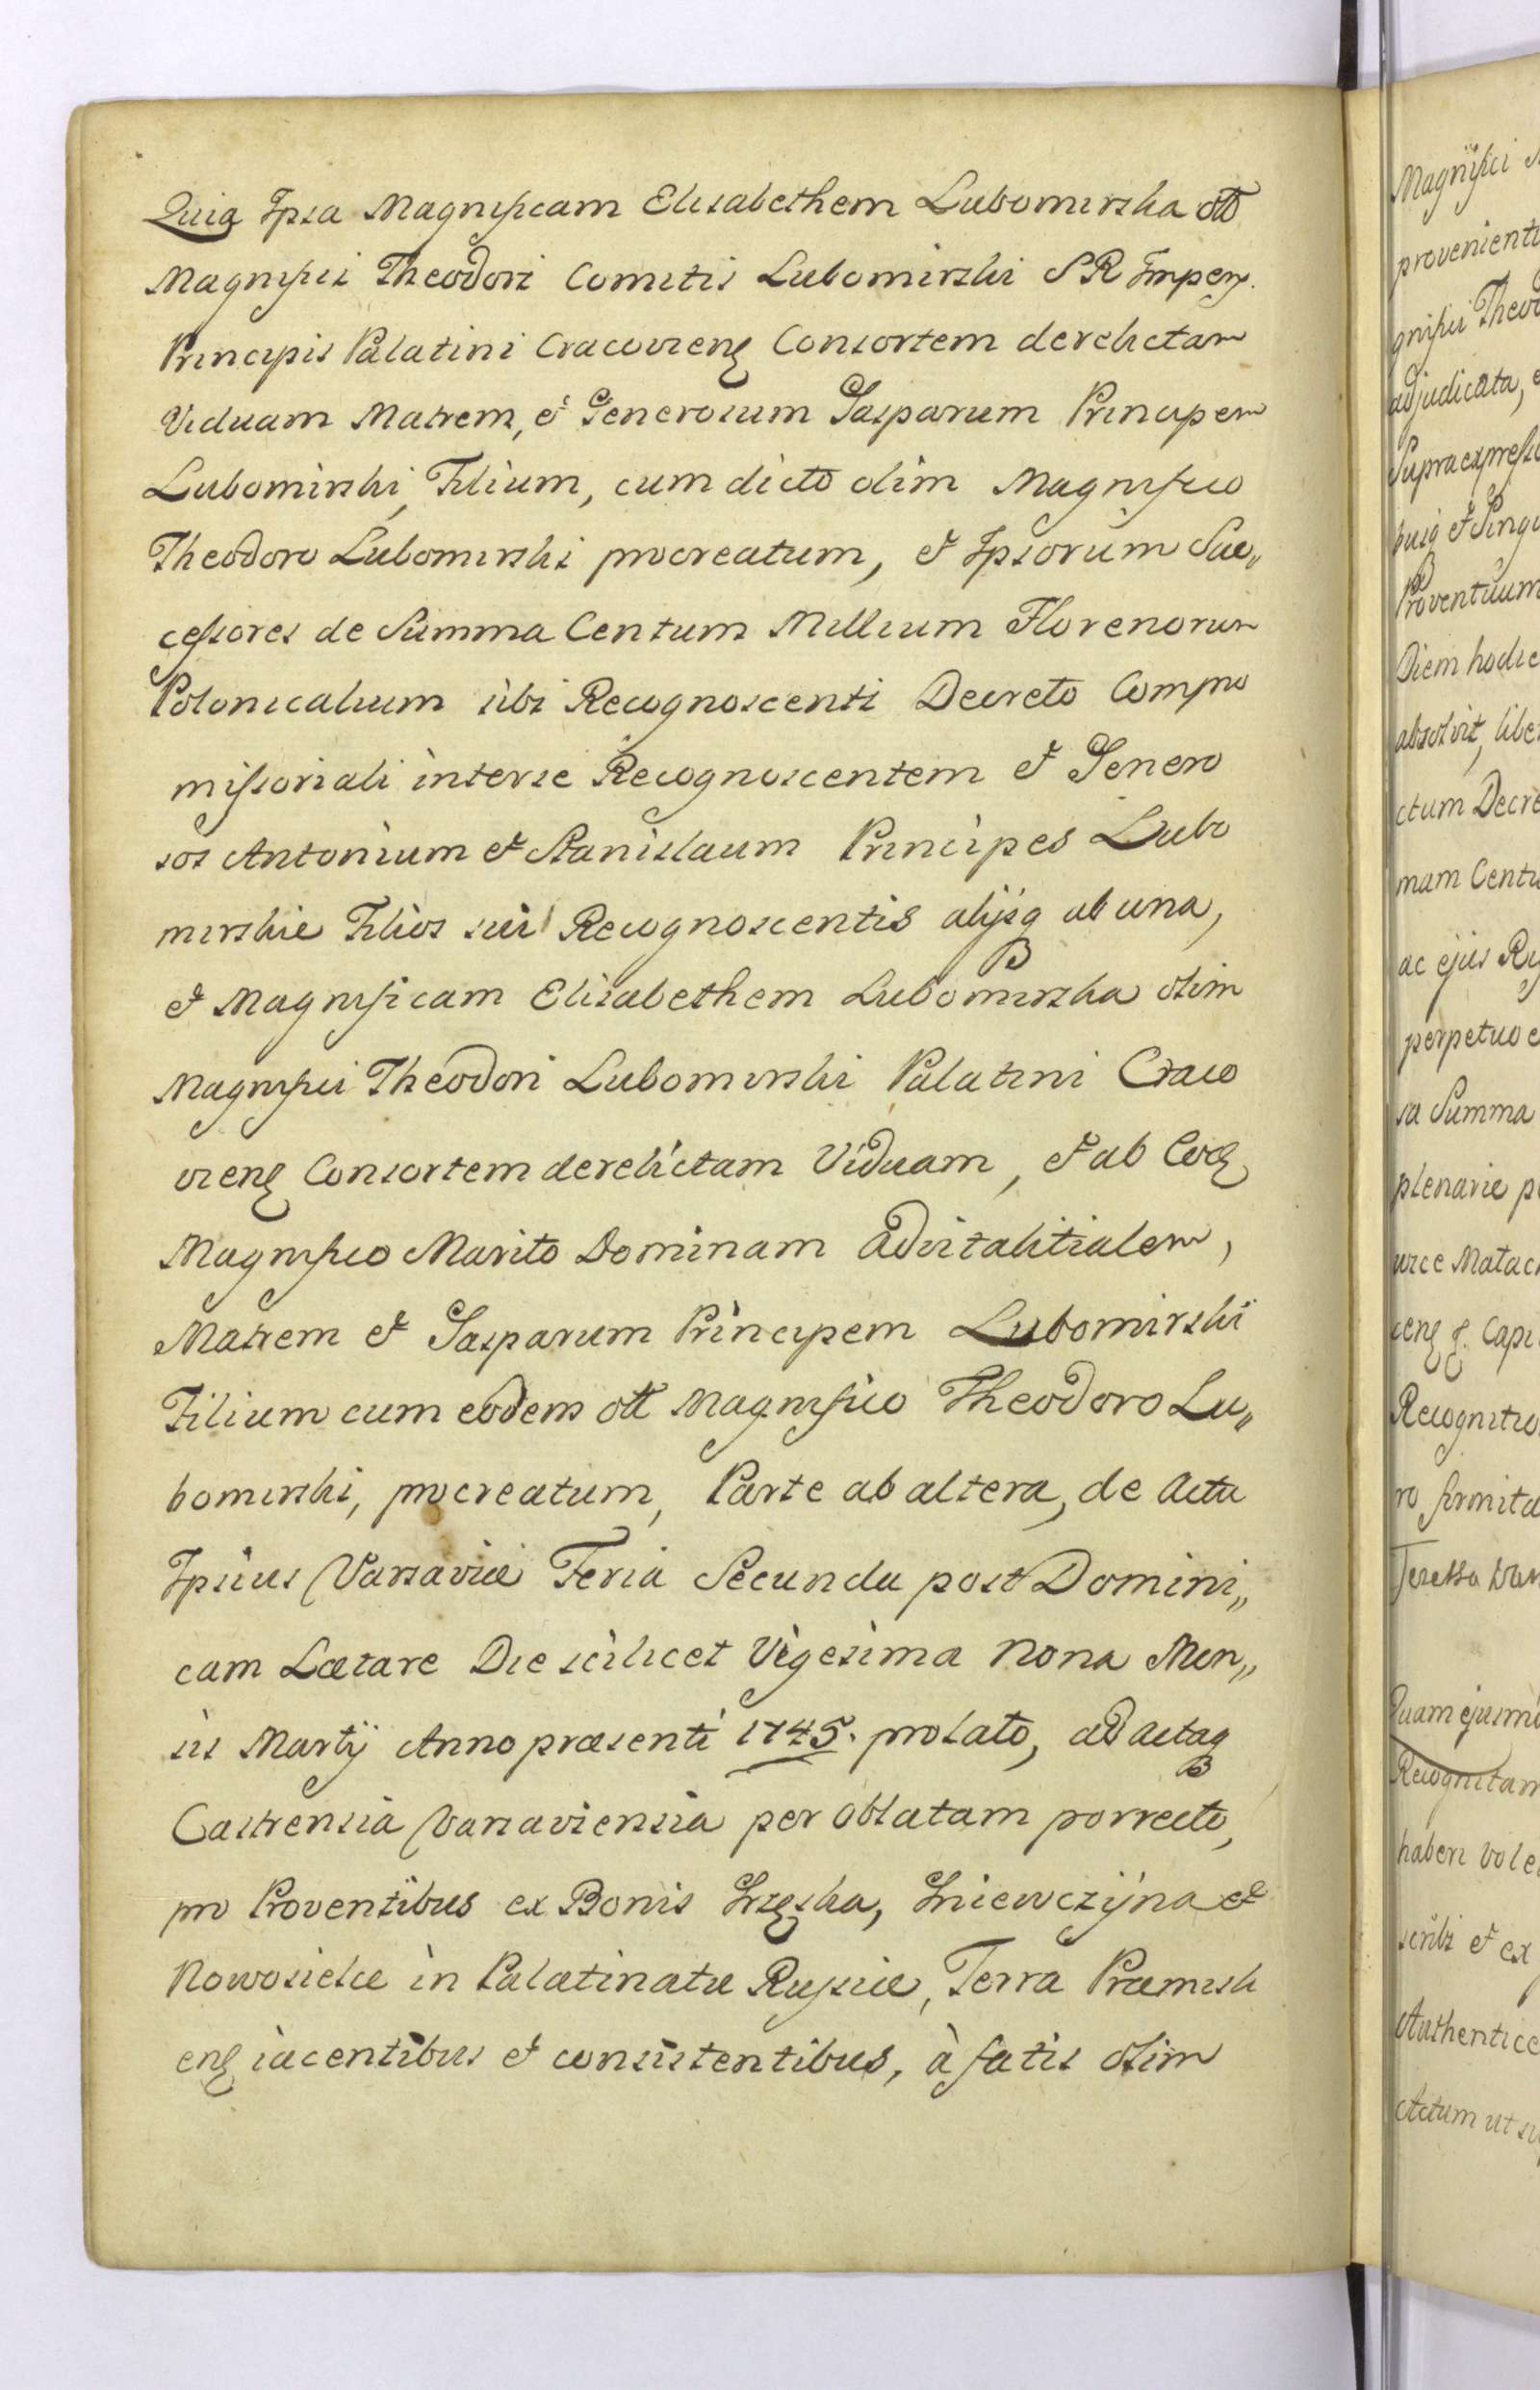 Quia Ipsa Magnificam Elisabethem Lubomirska ott
Magnifici Theodori Comitis Lubomirski S R Impery.
Principis Palatini Cracovien Consortem derelictam
Viduam Matrem, et Generosum Gasparum Principem
Lubomirski, Filium, cum dicto olim Magnifico
Theodoro Lubomirski procreatum, et Ipsorum Suc„
cessores de Summa Centum Millium Florenorum
Polonicalium sibi Recognoscenti Decreto Compro
missoriali interse Recognoscentem et Genero
sos Antonium et Stanislaum Principes Lubo
mirskie Filios sui Recognoscentis alijsq ab una,
et Magnificam Elisabethem Lubomirska olim
Magnifici Theodori Lubomirski Palatini Craco
vien Consortem derelictam Viduam, et ab Eod
Magnifico Marito Dominam advitalitialem,
Matrem et Gasparum Principem Lubomirski
Filium cum eodem ott Magnifico Theodoro Lu„
bomirski, procreatum, Parte ab altera, de Actu
Ipsius Varsaviæ Feria Secunda post Domini„
cam Lætare Die scilicet Vigesima Nona Men„
sis Martÿ Anno præsenti 1745. prolato, ad actaq
Castrensia Varsaviensia per Oblatam porrecto,
pro Proventibus ex Bonis Grzęska, Gniewczÿna et
Nowosielce in Palatinatu Russiæ, Terra Præmisli
en iacentibus et consistentibus, à fatis olim
Magnifici
provenient
gnifici Theod
adjudicata, e
Supraexpress
busq et Singu
Proventuum
Diem hodie
absolvit, libe
ctum Decre
mam Centu
ac ejus R
perpetuo e
sa Summa
plenarie p
Recognitio
haberi vole
scribi et ex
Authentice
Actum ut su